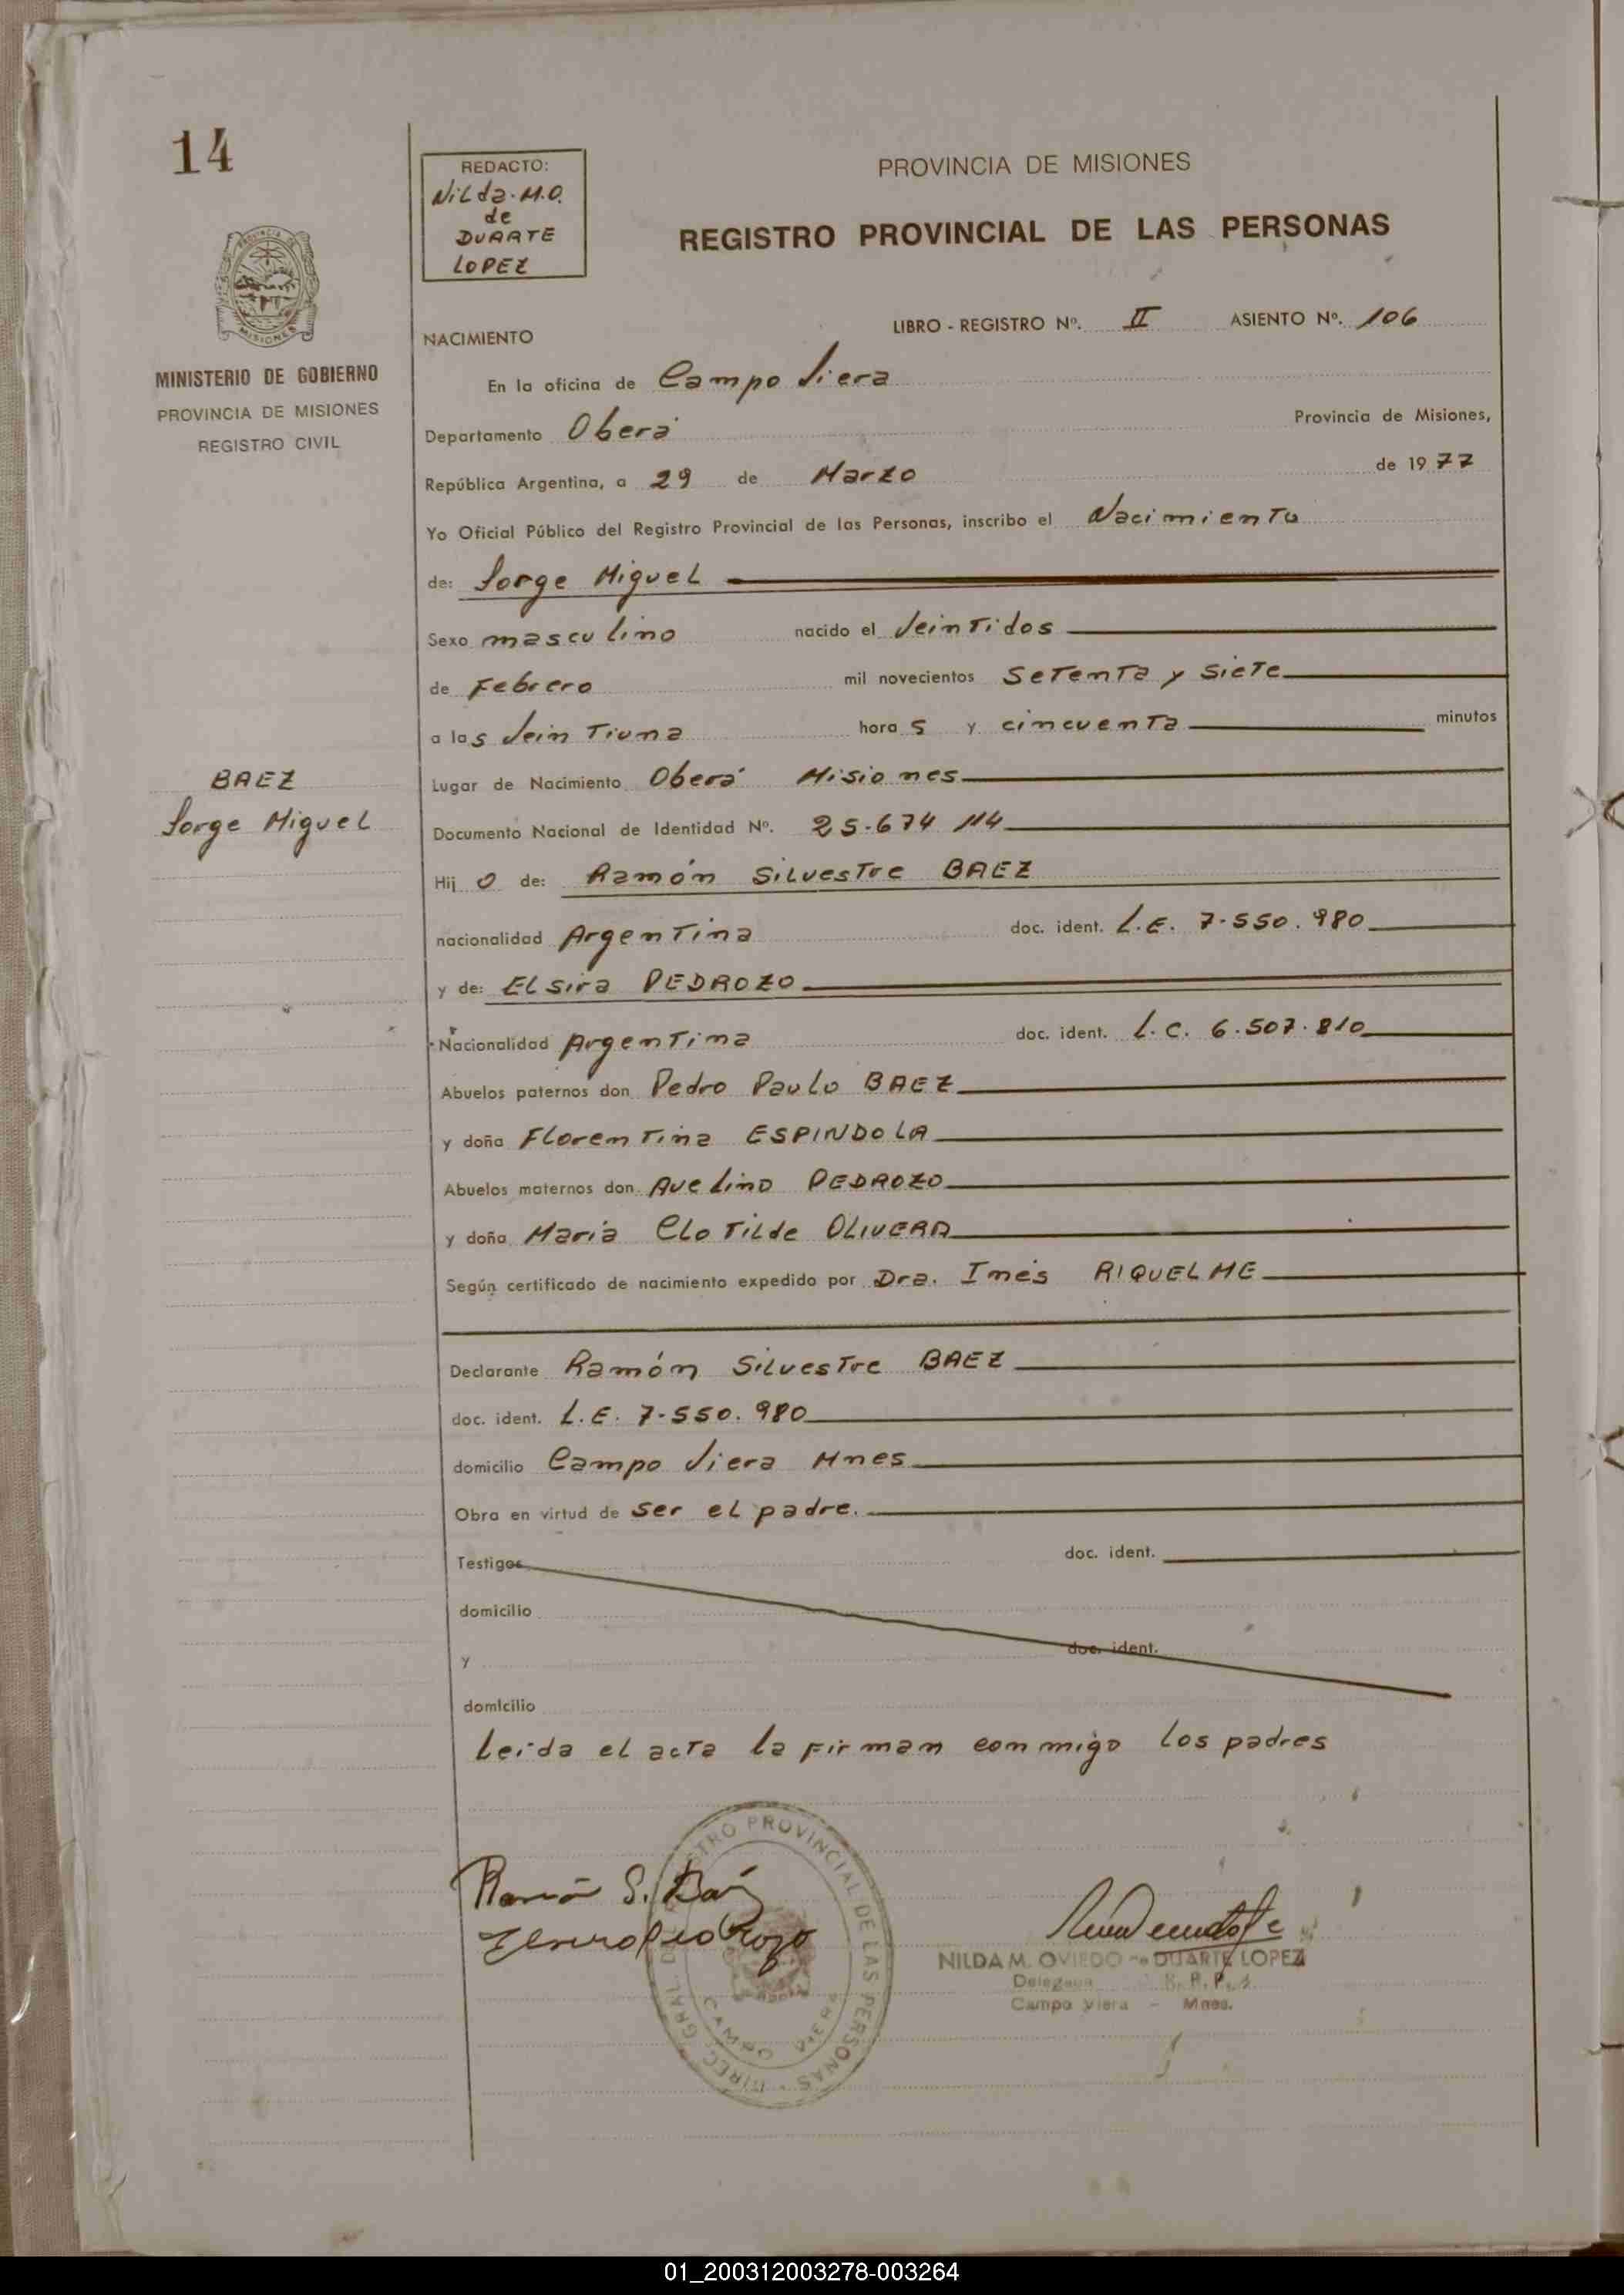 14
REDACTO:
Nilda.M.O.
de
DUARTE
LOPEZ
PROVINCIA DE MISIONES
REGISTRO PROVINCIAL DE LAS PERSONAS
PROVINCIA DE
MISIONES
MINISTERIO DE GOBIERNO
PROVINCIA DE MISIONES
REGISTRO CIVIL
LIBRO - REGISTRO Nº. II ASIENTO Nº. 106
NACIMIENTO
En la oficina de Campo Viera
Departamento Oberá Provincia de Misiones,
República Argentina, a 29 de Marzo de 1977
Yo Oficial Público del Registro Provincial de las Personas, inscribo el Nacimiento
de: Jorge Miguel
Sexo masculino nacido el Veintidos
de Febrero mil novecientos Setenta y Siete
a las Veintiuna horas y cincuenta minutos
Lugar de Nacimiento Oberá Misiones
BAEZ
Jorge Miguel
Documento Nacional de Identidad Nº. 25-674 114
Hijo de: Ramón Silvestre BAEZ
nacionalidad Argentina doc. ident. L.E. 7-550.980
y de: Elsira PEDROZO
Nacionalidad Argentina doc. ident. L.C. 6.507.810
Abuelos paternos don Pedro Paulo BAEZ
y doña Florentina ESPINDOLA
Abuelos maternos don Avelino PEDROZO
y doña Maria Clotilde OLIVERA
Según certificado de nacimiento expedido por Dra. Inés RIQUELME
Declarante Ramón Silvestre BAEZ
doc. ident. L.E. 7-550.980
domicilio Campo Viera Mnes
Obra en virtud de ser el padre.
Testigos doc. ident.
domicilio
y doc. ident.
domicilio
Leida el acta la firman conmigo los padres
Ramón S. Baez
Elsira Pedrozo
DIREC. GRAL. DEL REGISTRO PROVINCIAL DE LAS PERSONAS
CAMPO VIERA
NILDA M. OVIEDO de DUARTE LOPEZ
Delegada R. P. P.
Campo Viera - Mnes.
01_200312003278-003264